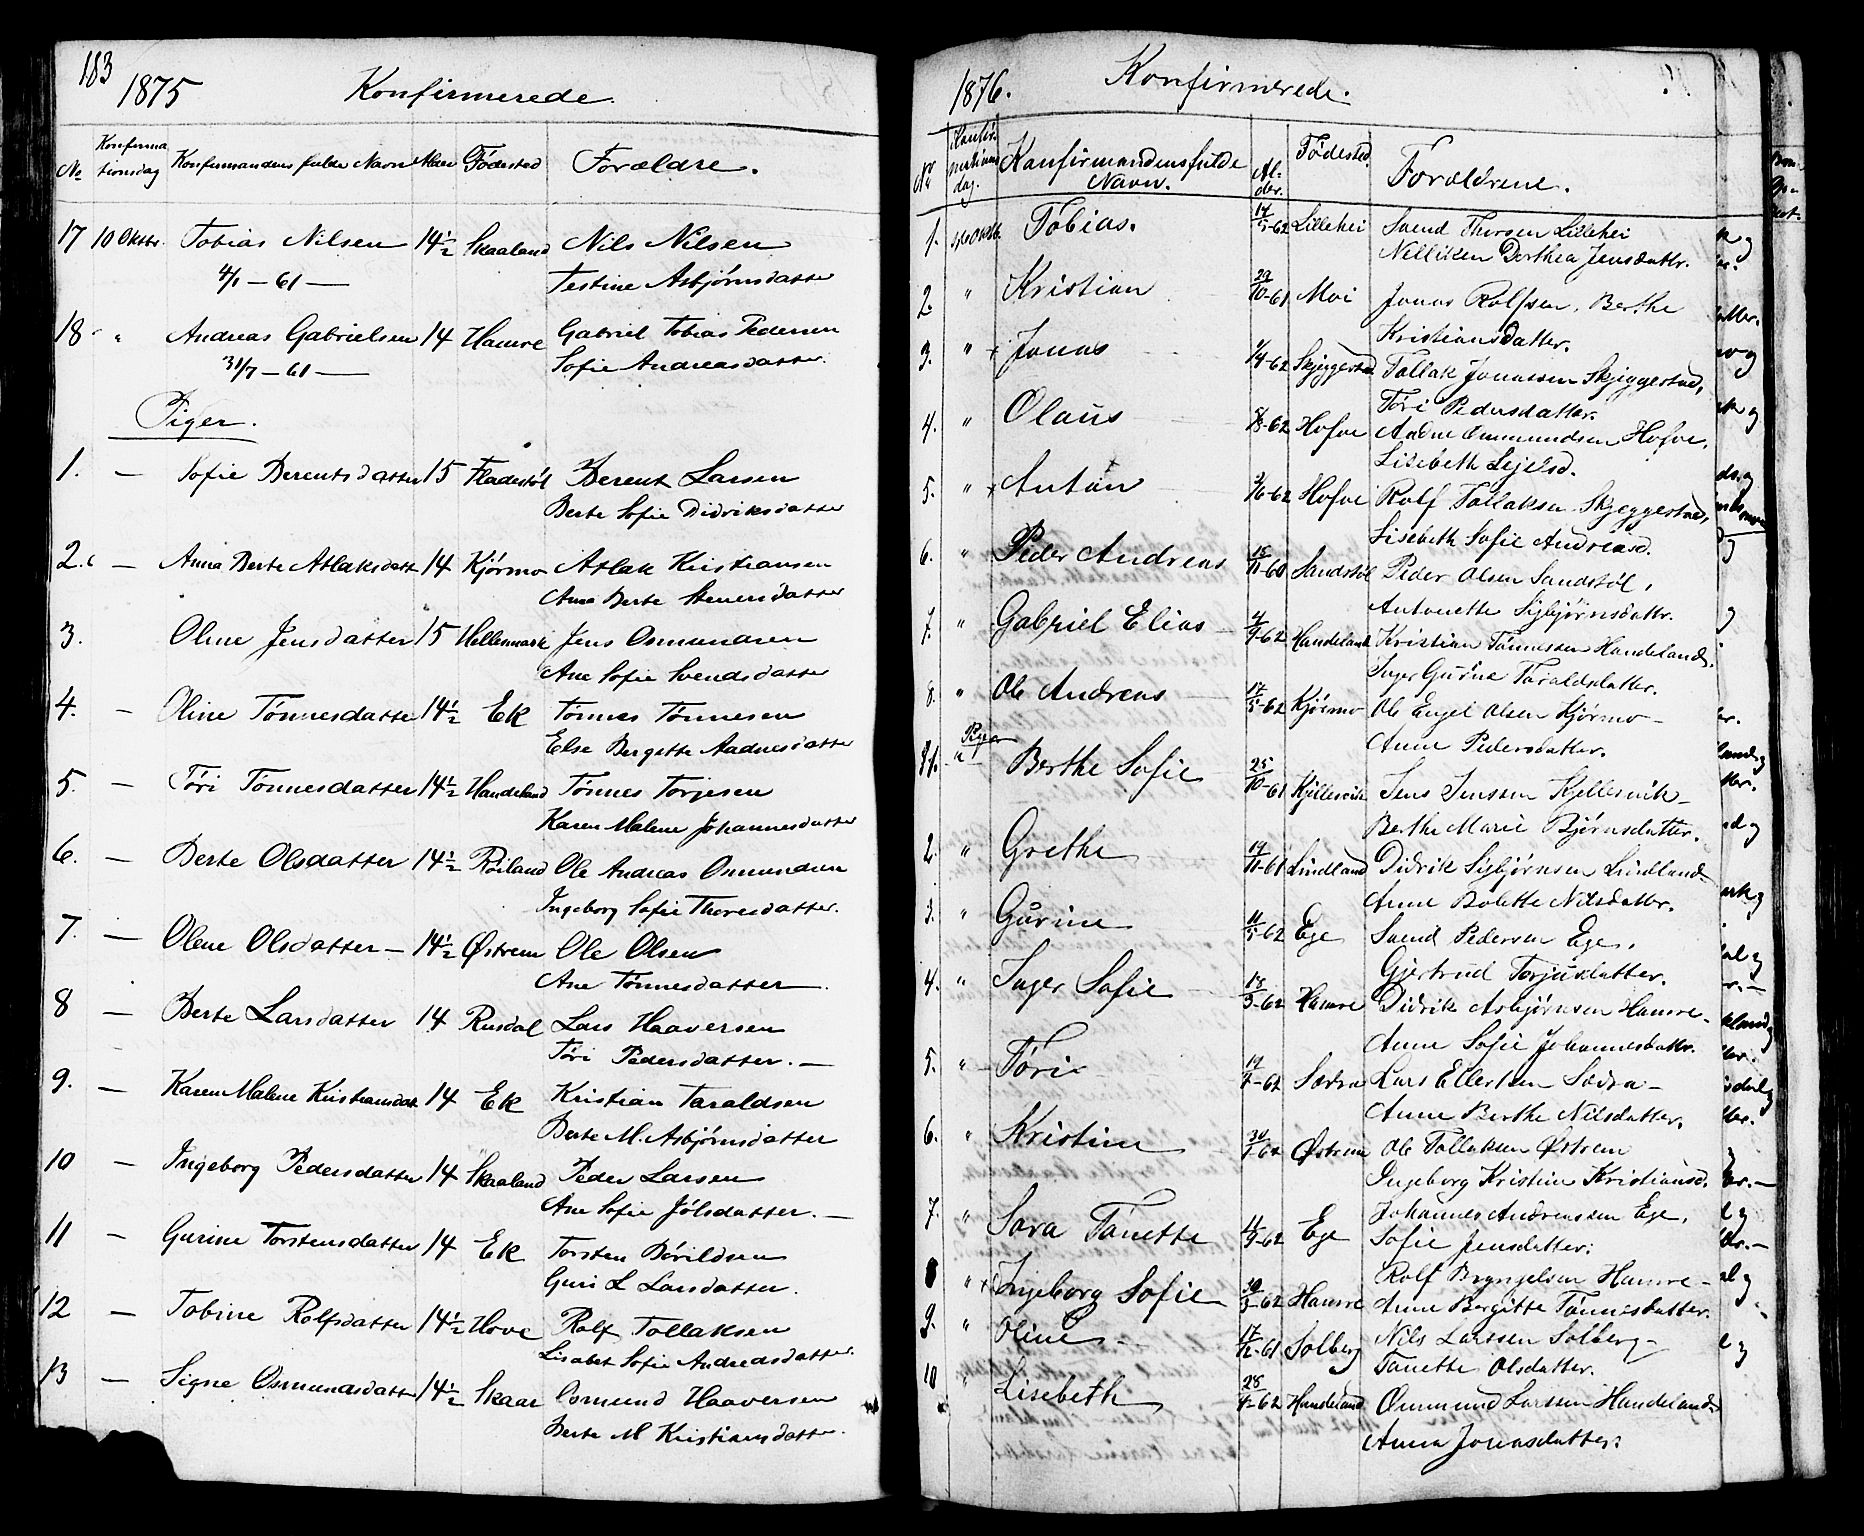 183
1875 Konfirmerede.
No Konfirmationsdag Konfirmandens fulde Navn Alder Fødested Forældre.
17 10 Oktbr. Tobias Nilsen 14½ Skaaland Nils Nilsen
4/1 — 61 — Testine Asbjørnsdatter
18 " Andreas Gabrielsen 14 Hamre Gabriel Tobias Pedersen
31/7 — 61 — Sofie Andreasdatter.
Piger.
1. — Sofie Berentsdatter 15 Fladestøl Berent Larsen
Berte Sofie Didriksdatter
2. — Anna Berte Atlaksdatt 14 Kjørmo Atlak Kristiansen
Ane Berte Stenersdatter
3. Oline Jensdatter 15 Hellesmark Jens Osmundsen
Ane Sofie Svendsdatter
4. — Oline Tønnesdatter 14½ Ek Tønnes Tønnesen
Else Bergette Aadnesdatter
5. — Tøri Tønnesdatter 14½ Handeland Tønnes Torjesen
Karen Malene Johannesdatter
6. — Berte Olsdatter 14½ Røiland Ole Andreas Osmundsen
Ingeborg Sofie Thoresdatter.
7. — Olene Olsdatter — 14½ Østrem Ole Olsen
Ane Tønnesdatter.
8 — Berte Larsdatter 14 Rusdal Lars Haaversen
Tøri Pedersdatter. —
9. — Karen Malene Kristiansdat 14 Ek Kristian Taraldsen
Berte M. Asbjørnsdatter
10 — Ingeborg Pedersdatter 14 Skaaland Peder Larsen
Ane Sofie Jølsdatter. —
11 — Gurine Torstensdatter 14 Ek Torsten Børildsen
Guri L Larsdatter.
12 — Tobine Rolfsdatter 14½ Hove Rolf Tollaksen
Lisabet Sofie Andreasdatter.
13 — Signe Osmundsdatter 14½ Skaar Osmund Haaversen
Berte M Kristiansdatter.
1876. Konfirmerede.
No Konfirmationsdag. Konfirmandens fulde Navn. Alder. Fødested. Forældrene.
1. Oktb. Tobias. 14/5-62 Lillehei Svend Thorsen Lillehei
Nellisen Dorthea Jensdattr.
2. " Kristian 29/10-61 Moi Jonas Rolfsen, Berthe
Kristiansdatter.
3. " Jonas 1/4-62 Skjeggestad Tollak Jonassen Skjeggestad,
Tøri Pedersdatter.
4. " Olaus 8/8-62 Hofve Aadne Ommundsen Hofve,
Lisebeth
5. " Anton 3/6-62 Hofve Rolf Tollaksen Skjeggestad,
Lisebeth Sofie Andreasd.
6. " Peder Andreas 15/11-60 Sandstøl Peder Olsen Sandstøl,
Antonette Sigbjørnsdattr.
7. " Gabriel Elias Handeland Kristian Tønnessen Handeland.
Inger Gurine Taraldsdatter.
8. " Ole Andreas 17/5-62 Kjørmo Ole Engel Olsen Kjørmo —
Anne Pedersdatter.
Piger
1. " Berthe Sofie 25/10-61 Kjellesvik Jens Jenssen Kjellesvik —
Berthe Marie Bjørnsdatter.
2. " Grethe 19/11-61 Lindland Didrik Sigbjørnsen Lindland —
Anne Bolette Nilsdatter.
3. " Gurine 11/5-62 Ege Svend Pedersen Ege,
Gjertrud Torjusdatter.
4. " Inger Sofie 18/3-62 Hamre Didrik Asbjørnsen Hamre —
Anne Sofie Johannesdattr.
5. " Tøri Sædra Lars Ellertsen Sædra —
Anne Berthe Nilsdatter.
6. " Kristine Østrem Ole Tollaksen Østrem
Ingeborg Kristine Kristiansd.
7. " Sara Tonette Ege Johannes Andreassen Ege,
Sofie Jensdatter.
8 " Ingeborg Sofie 30/3-62 Hamre Rolf Bryngelsen Hamre —
Anne Bergitte Tønnesdatter.
9. " Oline 17/12-61 Solberg Nils Larssen Solberg —
Tonette Olsdatter.
10 " Lisebeth Handeland Ommund Larssen Handeland
Anna Jonasdatter.